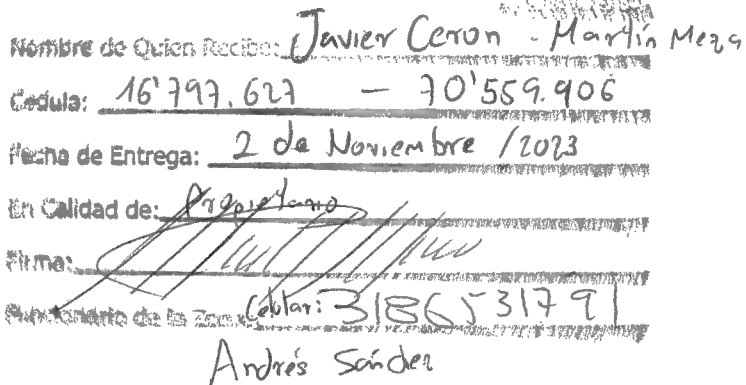 Nombre de Quien Recibe: Javier Ceron - Martín Meza
Cedula: 16'797.627 - 70'559.906
Fecha de Entrega: 2 de Noviembre /2023
En Calidad de: Propietario
Firma:
Funcionario de la Zona: Celular: 3186531791
Andrés Sánchez